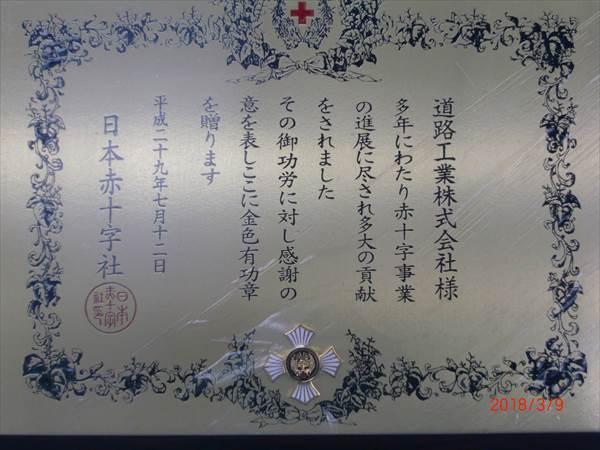 道路工業株式会社様
多年にわたり赤十字事業
の進展に尽され多大の貢献
をされました
その御功労に対し感謝の
意を表しここに金色有功章
を贈ります
平成二十九年七月十二日
日本赤十字社
日本
赤十字
社
2018/3/9